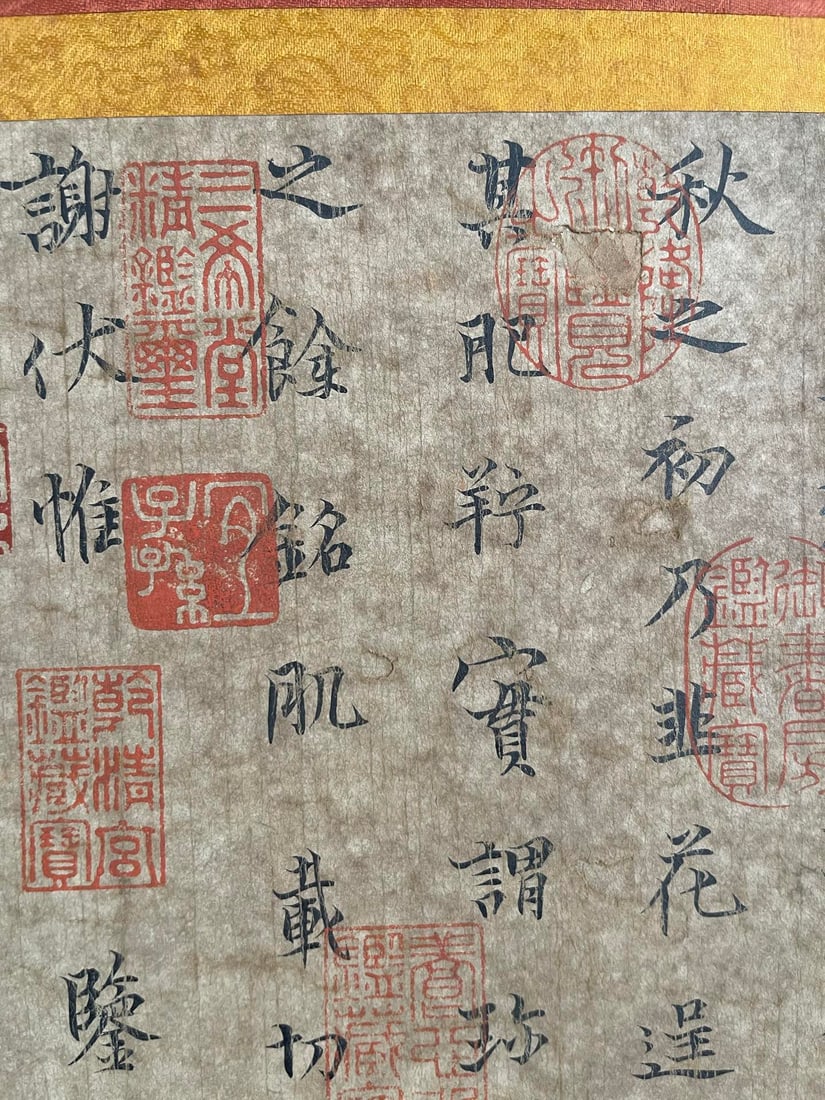 秋之初乃韭花逞
其肥羜實謂珍
之餘銘肌載切
謝伏惟鑒
乾隆御覽之寶
御書房鑑藏寶
三希堂精鑑璽
宜子孫
乾清宮鑑藏寶